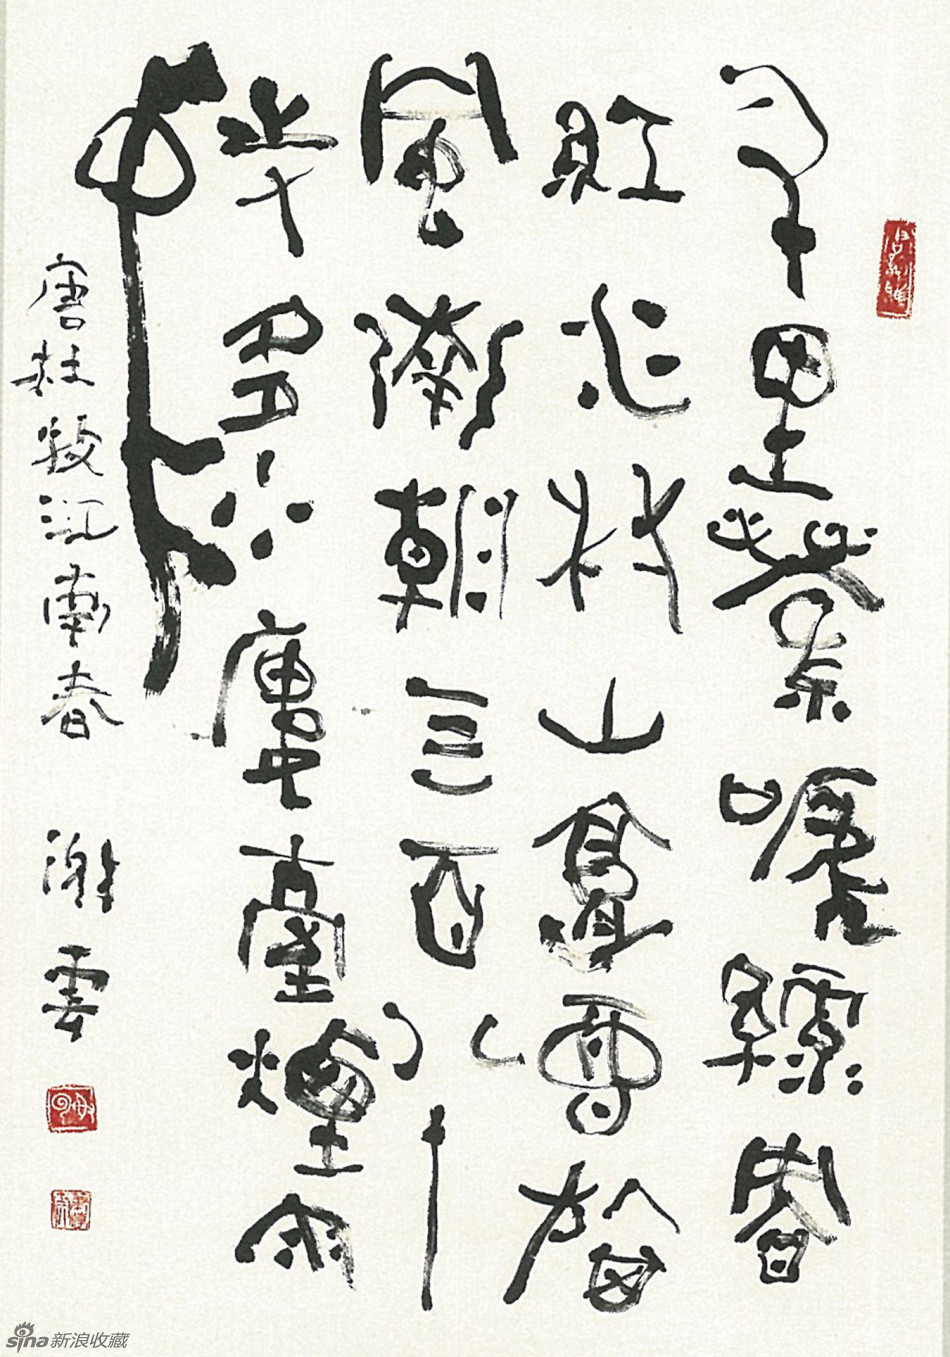 千里鶯啼綠映
紅水村山郭酒旗
風南朝亖百八十
寺多少樓臺煙雨
中
唐杜牧江南春 謝雲
sina新浪收藏